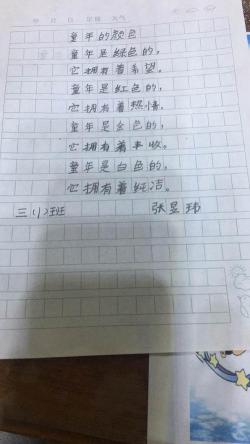 童年的颜色
童年是绿色的，
它拥有着希望。
童年是红色的，
它拥有着热情。
童年是金色的，
它拥有着丰收。
童年是白色的，
它拥有着纯洁。
三(1)班 张昱玮